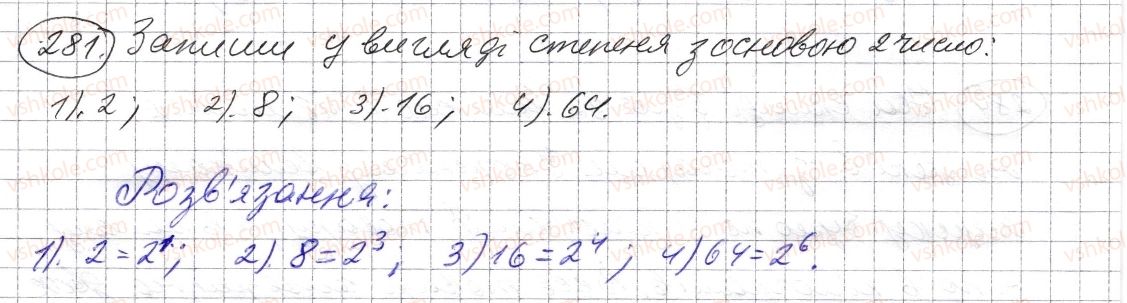 281. Запиши у вигляді степеня з основою 2 число:
1). 2; 2). 8; 3). 16; 4). 64.
Розв'язання:
1). 2 = 2¹; 2). 8 = 2³; 3) 16 = 2⁴; 4) 64 = 2⁶.